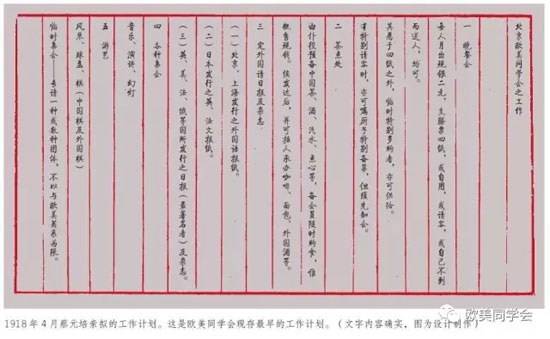 北京欧美同学会之工作
一 晚餐会
每人月出现银二元,支膳票四纸,或自用,或请客,或自己不到
而送人,均可。
其愿于四纸之外,临时特别多购者,亦可供给。
有特别请客时,亦可嘱厨房特别备菜,但须先知会。
二 茶点处
由仆役预备中国茶、酒、汽水、点心等,备会员随时购食,惟
概售现钱。俟发达后,并可招人承办咖啡、面包、外国酒等。
三 定外国语日报及杂志
(一)北京、上海发行之外国语报纸。
(二)日本发行之英、法文报纸。
(三)英、美、法、俄等国所发行之日报(最著名者)及杂志。
四 各种集会
音乐、演讲、幻灯
五 游艺
风琴、球盘、棋(中国棋及外国棋)
临时集会 专请一种或数种团体,不以与欧美关系为限。
1918年4月蔡元培亲拟的工作计划。这是欧美同学会现存最早的工作计划。(文字内容确实,图为设计制作)
欧美同学会